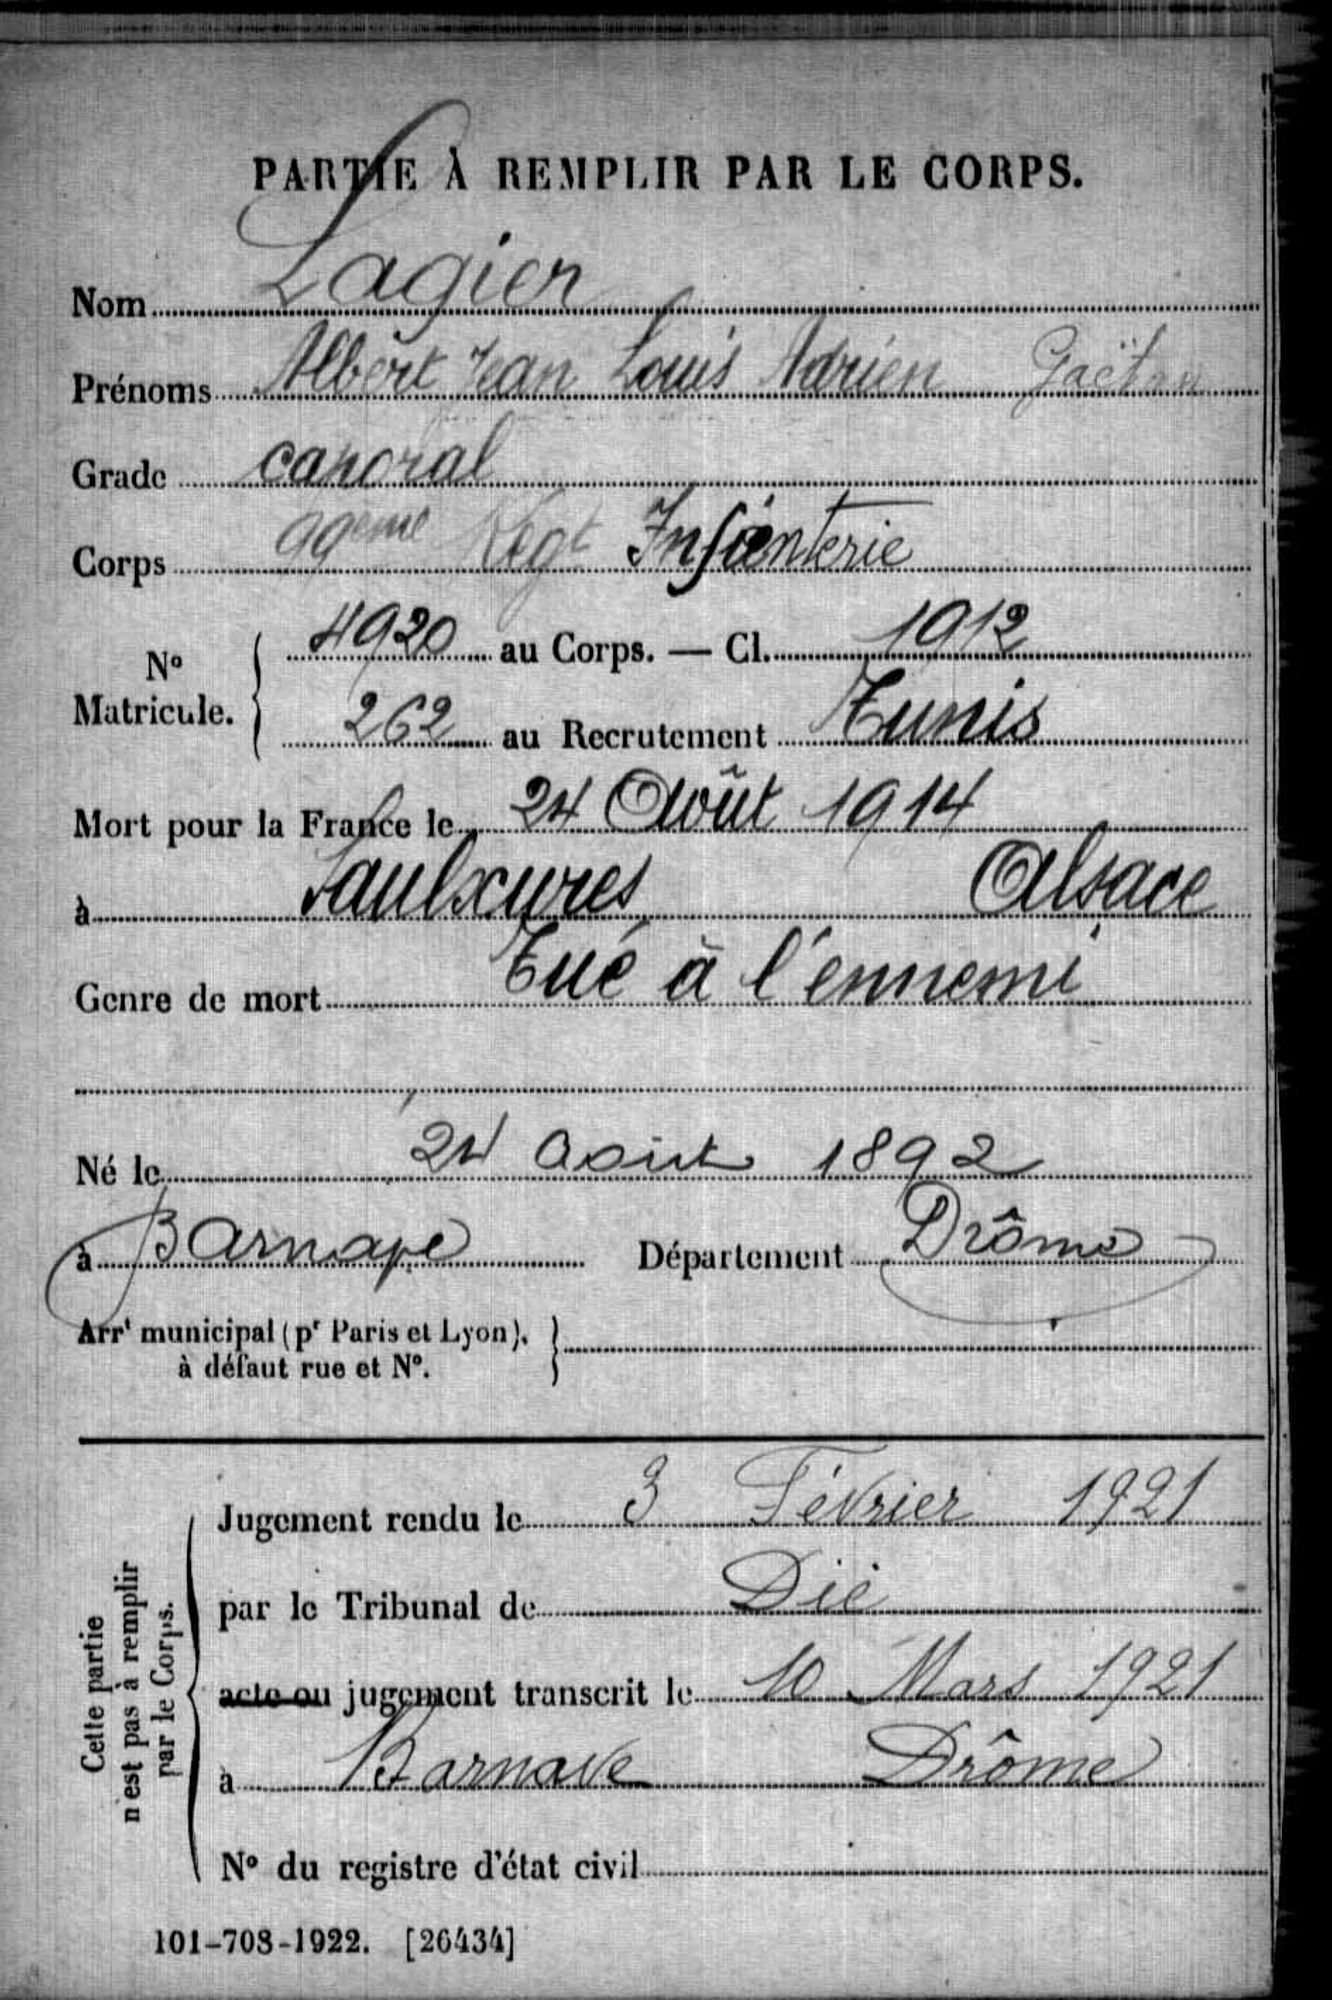 PARTIE À REMPLIR PAR LE CORPS.
Nom Lagier
Prénoms Albert Jean Louis Adrien Gaëtan
Grade caporal
Corps 99eme Régt Infanterie
N° Matricule. { 4920 au Corps. — Cl. 1912
262 au Recrutement Tunis
Mort pour la France le 24 Août 1914
à Saulxures Alsace
Genre de mort Tué à l'ennemi
Né le 24 Août 1892
à Barnave Département Drôme
Arrt municipal (pr Paris et Lyon), }
à défaut rue et N°.
Cette partie
n'est pas à remplir
par le Corps.
Jugement rendu le 3 Février 1921
par le Tribunal de Die
acte ou jugement transcrit le 10 Mars 1921
à Barnave Drôme
N° du registre d'état civil
101-708-1922. [26434]